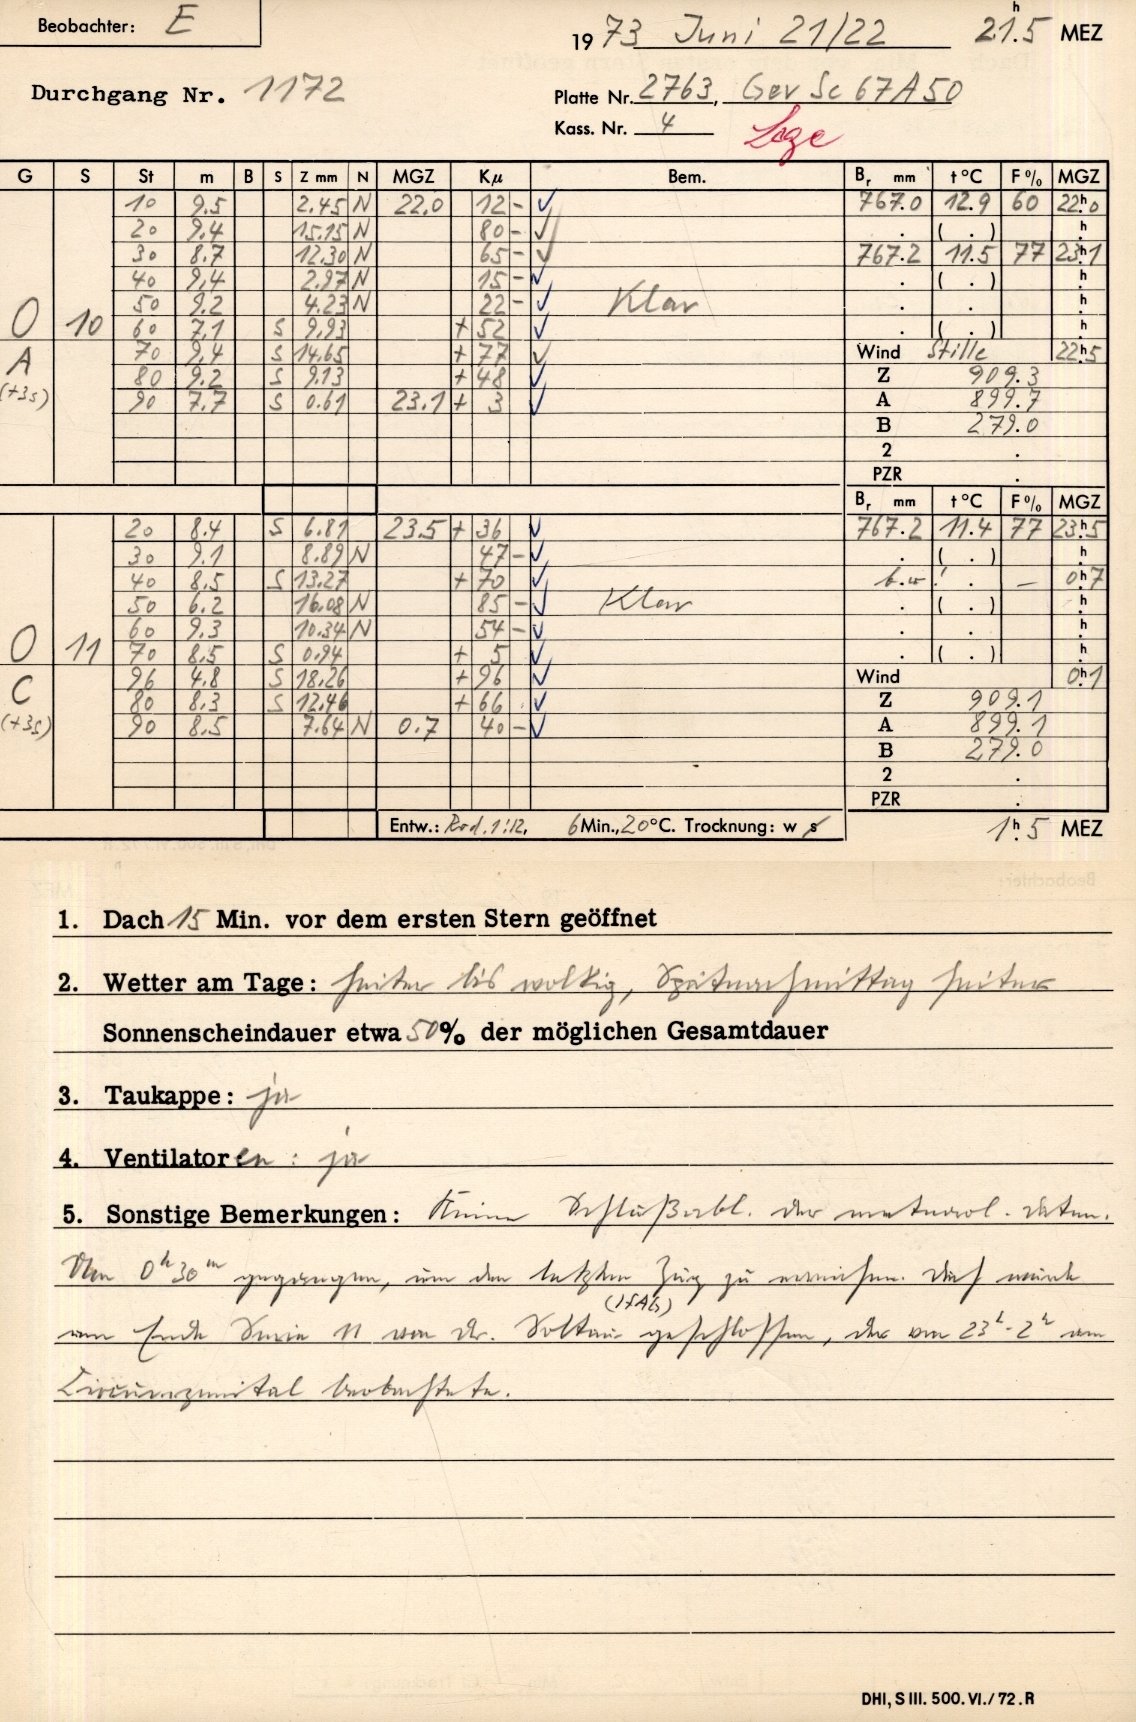 Beobachter: E
1973 Juni 21/22 21h.5 MEZ
Durchgang Nr. 1172
Platte Nr. 2763, Gev Sc 67A50
Kass. Nr. 4
G S St m B S Z mm N MGZ Kμ Bem. Br mm t°C F% MGZ
10 9.5 2.45 N 22.0 12 - ✓ 767.0 12.9 60 22h.0
20 9.4 15.15 N 80 - ✓ . ( . ) h.
30 8.7 12.30 N 65 - ✓ 767.2 11.5 77 23h.1
40 9.4 2.97 N 15 - ✓ . ( . ) h.
50 9.2 4.23 N 22 - ✓ Klar . . h.
O 10 60 7.1 S 9.93 + 52 ✓ . ( . ) h.
A 70 9.4 S 14.65 + 77 ✓ Wind Stille 22h.5
80 9.2 S 9.13 + 48 ✓ Z 909.3
(+3s) 90 7.7 S 0.61 23.1 + 3 ✓ A 899.7
B 279.0
2 .
PZR .
Br mm t°C F% MGZ
20 8.4 S 6.81 23.5 + 36 ✓ 767.2 11.4 77 23h.5
30 9.1 8.89 N 47 - ✓ . ( . ) h.
40 8.5 S 13.27 + 70 ✓ b.w! . — 0h.7
50 6.2 16.08 N 85 - ✓ Klar . ( . ) h.
60 9.3 10.34 N 54 - ✓ . . h.
O 11 70 8.5 S 0.94 + 5 ✓ . ( . ) h.
C 96 4.8 S 18.26 + 96 ✓ Wind 0h.1
80 8.3 S 12.46 + 66 ✓ Z 909.1
(+3s) 90 8.5 7.64 N 0.7 40 - ✓ A 899.1
B 279.0
2 .
PZR .
Entw.: Rod. 1:12, 6 Min., 20°C. Trocknung: w s 1h.5 MEZ
1. Dach 15 Min. vor dem ersten Stern geöffnet
2. Wetter am Tage: heiter bis wolkig, Spätnachmittag heiter
Sonnenscheindauer etwa 50% der möglichen Gesamtdauer
3. Taukappe: ja
4. Ventilatoren: ja
5. Sonstige Bemerkungen: Keine Schlußabl. der meteorol. Daten.
Um 0h30m gegangen, um den letzten Zug zu erreichen. Dach wurde
(IfAG)
am Ende Serie 11 von Dr. Soltau geschlossen, der von 23h-2h am
Circumzenital beobachtete.
DHI, S III. 500. VI./72. R